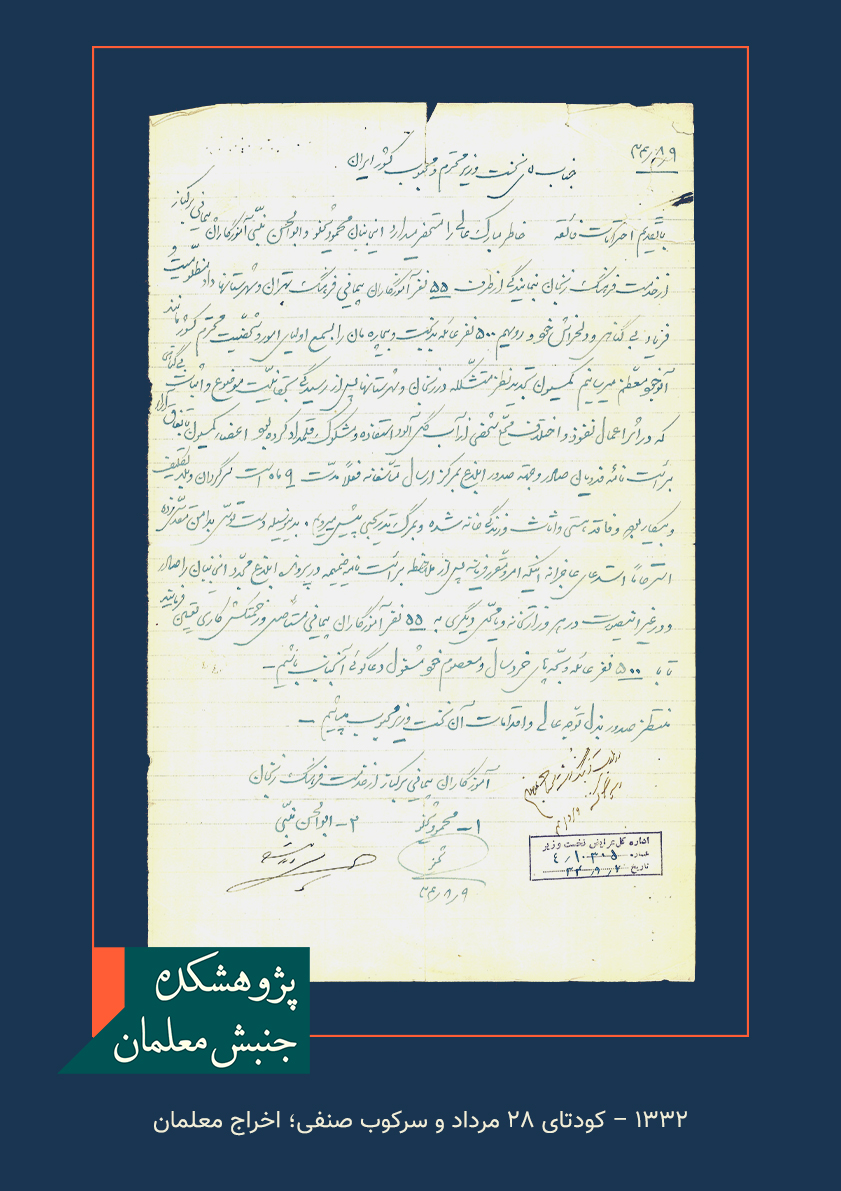 ۳۴/۸/۹
جناب آقای نخست وزیر محترم و محبوب کشور ایران
با تقدیم احترامات فائقه خاطر مبارک عالی را مستحضر میدارد اینجانبان محمود کمگو و ابوالحسن نبئی آموزگاران پیمانی برکنار
از خدمت فرهنگ زنجان بنمایندگی از طرف ۵۵ نفر آموزگاران پیمانی فرهنگ تهران و شهرستانها داد مظلومیت و
فریاد بی گناهی و دلخراش خود و رویهم ۵۰۰ نفر عائله بدبخت و بیچاره مان را بسمع اولیای امور و شخصیت محترم کشور مانند
آنوجود معظم میرسانیم کمیسیون تجدید نظر متشکله در زنجان و شهرستانها پس از رسیدگی بحقانیت موضوع و اثبات بی گناهی
که در اثر اعمال نفوذ و اختلاف شخصی از آب گل آلود استفاده و مشکوک قلمداد کرده بودند اعضاء کمیسیون باتفاق آراء
برائت نامه فدویان صادر و جهت صدور ابلاغ بمرکز ارسال متأسفانه فعلاً مدت ۹ ماه است سرگردان و بلاتکلیف
و بیکار بوده و فاقد هستی و اثاث و زندگی خانه شده و بمرگ تدریجی پیش میرویم. بدینوسیله دست توسل بدامن مقدس زده
استرحاماً استدعای عاجزانه اینکه امر و مقرر فرمایند پس از ملاحظه برائت نامه ضمیمه در پرونده ابلاغ مجدد اینجانبان را صادر
و در غیر اینصورت در هر وزارتخانه و یا محل دیگری به ۵۵ نفر آموزگاران پیمانی مستأصل و زحمتکش کاری تعیین فرمایند
تا با ۵۰۰ نفر عائله و بچه های خردسال و معصوم خود مشغول دعاگوئی آنجناب باشیم ـ
منتظر صدور بذل توجه عالی و اقدامات آن نخست وزیر محبوب میباشیم ـ
آموزگاران پیمانی برکنار از خدمت فرهنگ زنجان
۱ـ محمود کمگو ۲ـ ابوالحسن نبئی
۳۴/۸/۹
اداره کل عرایض نخست وزیر
شماره ۴/۱۰۳۰۵
تاریخ ۳۴/۹/۲
پژوهشکده
جنبش معلمان
۱۳۳۲ – کودتای ۲۸ مرداد و سرکوب صنفی؛ اخراج معلمان